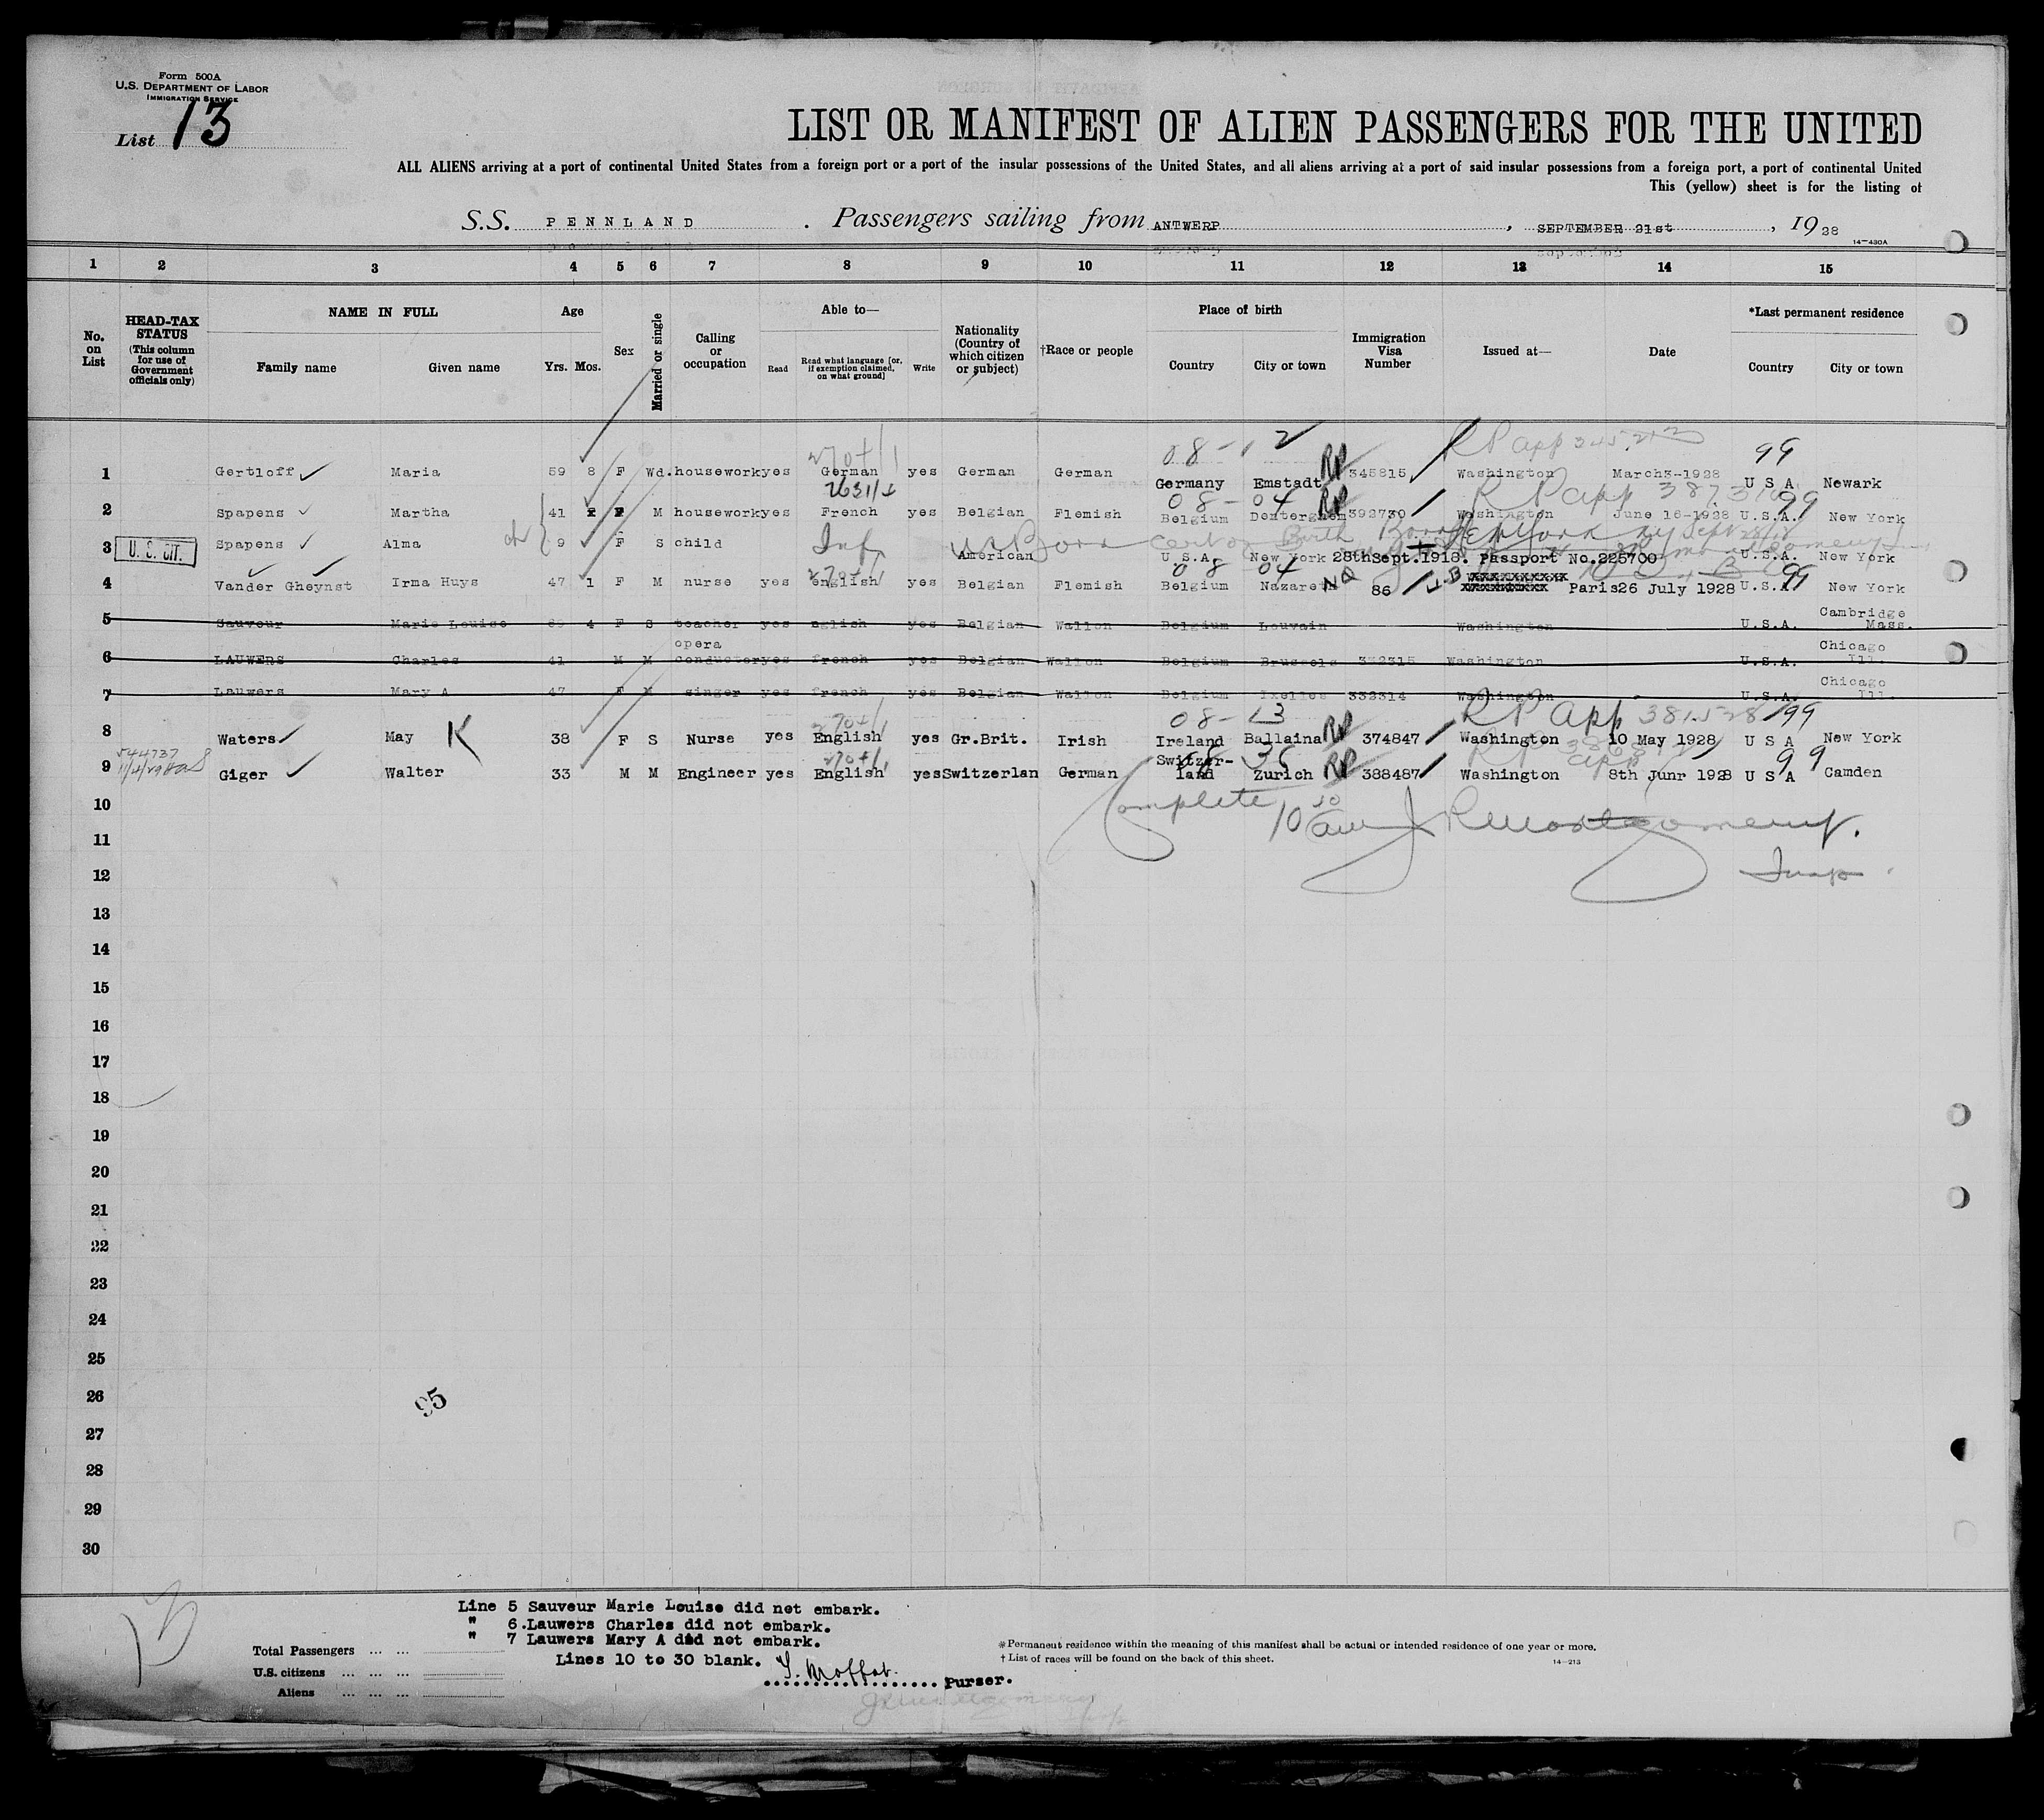 Form 500A
U.S. DEPARTMENT OF LABOR
IMMIGRATION SERVICE
List 13
LIST OR MANIFEST OF ALIEN PASSENGERS FOR THE UNITED
ALL ALIENS arriving at a port of continental United States from a foreign port or a port of the insular possessions of the United States, and all aliens arriving at a port of said insular possessions from a foreign port, a port of continental United
This (yellow) sheet is for the listing of
S.S. PENNLAND . Passengers sailing from ANTWERP , SEPTEMBER 21st , 19 28
14—430A
1 2 3 4 5 6 7 8 9 10 11 12 13 14 15
No. on List
HEAD-TAX STATUS (This column for use of Government officials only)
NAME IN FULL
Family name Given name
Age
Yrs. Mos.
Sex
Married or single
Calling or occupation
Able to—
Read Read what language [or, if exemption claimed, on what ground] Write
Nationality (Country of which citizen or subject)
†Race or people
Place of birth
Country City or town
Immigration Visa Number
Issued at—
Date
*Last permanent residence
Country City or town
08-12 RP app 99
1 Gertloff Maria 59 8 F Wd. housework yes German yes German German Germany Emstadt RP 345815 Washington March3-1928 U S A Newark
08-04 RP app 99
2 Spapens Martha 41 F M housework yes French yes Belgian Flemish Belgium Denterghem RP 392730 Washington June 16-1928 U.S.A. New York
3 U. S. CIT. Spapens Alma 9 F S child Inf American U.S.A. New York 28thSept.1918. Passport No.225700 U.S.A. New York
08 04 99
4 Vander Gheynst Irma Huys 47 1 F M nurse yes english yes Belgian Flemish Belgium Nazareth NQ 86 xxxxxxxxxx Paris 26 July 1928 U.S.A. New York
5 Sauveur Marie Louise 4 F S teacher yes nglish yes Belgian Wallon Belgium Louvain Washington U.S.A. Cambridge Mass.
6 LAUWERS Charles 41 M M opera conductor yes french yes Belgian Wallon Belgium Brussels 332315 Washington U.S.A. Chicago Ill.
7 Lauwers Mary A 47 F M singer yes french yes Belgian Wallon Belgium Ixelles 332314 Washington U.S.A. Chicago Ill.
08-13 RP app 381528 99
8 Waters May K 38 F S Nurse yes English yes Gr.Brit. Irish Ireland Ballaina RP 374847 Washington 10 May 1928 U S A New York
544737
9 Giger Walter 33 M M Engineer yes English yes Switzerlan German Switzer-land Zurich RP 388487 Washington 8th Junr 1928 U S A Camden
10
Complete 10 10 am J R Montgomery.
11
12 Insp
13
14
15
16
17
18
19
20
21
22
23
24
25
26
95
27
28
29
30
Line 5 Sauveur Marie Louise did not embark.
" 6.Lauwers Charles did not embark.
" 7 Lauwers Mary A did not embark.
Lines 10 to 30 blank.
Total Passengers ... ...
U.S. citizens ... ... ...
Aliens ... ... ...
Purser.
*Permanent residence within the meaning of this manifest shall be actual or intended residence of one year or more.
† List of races will be found on the back of this sheet.
14—213